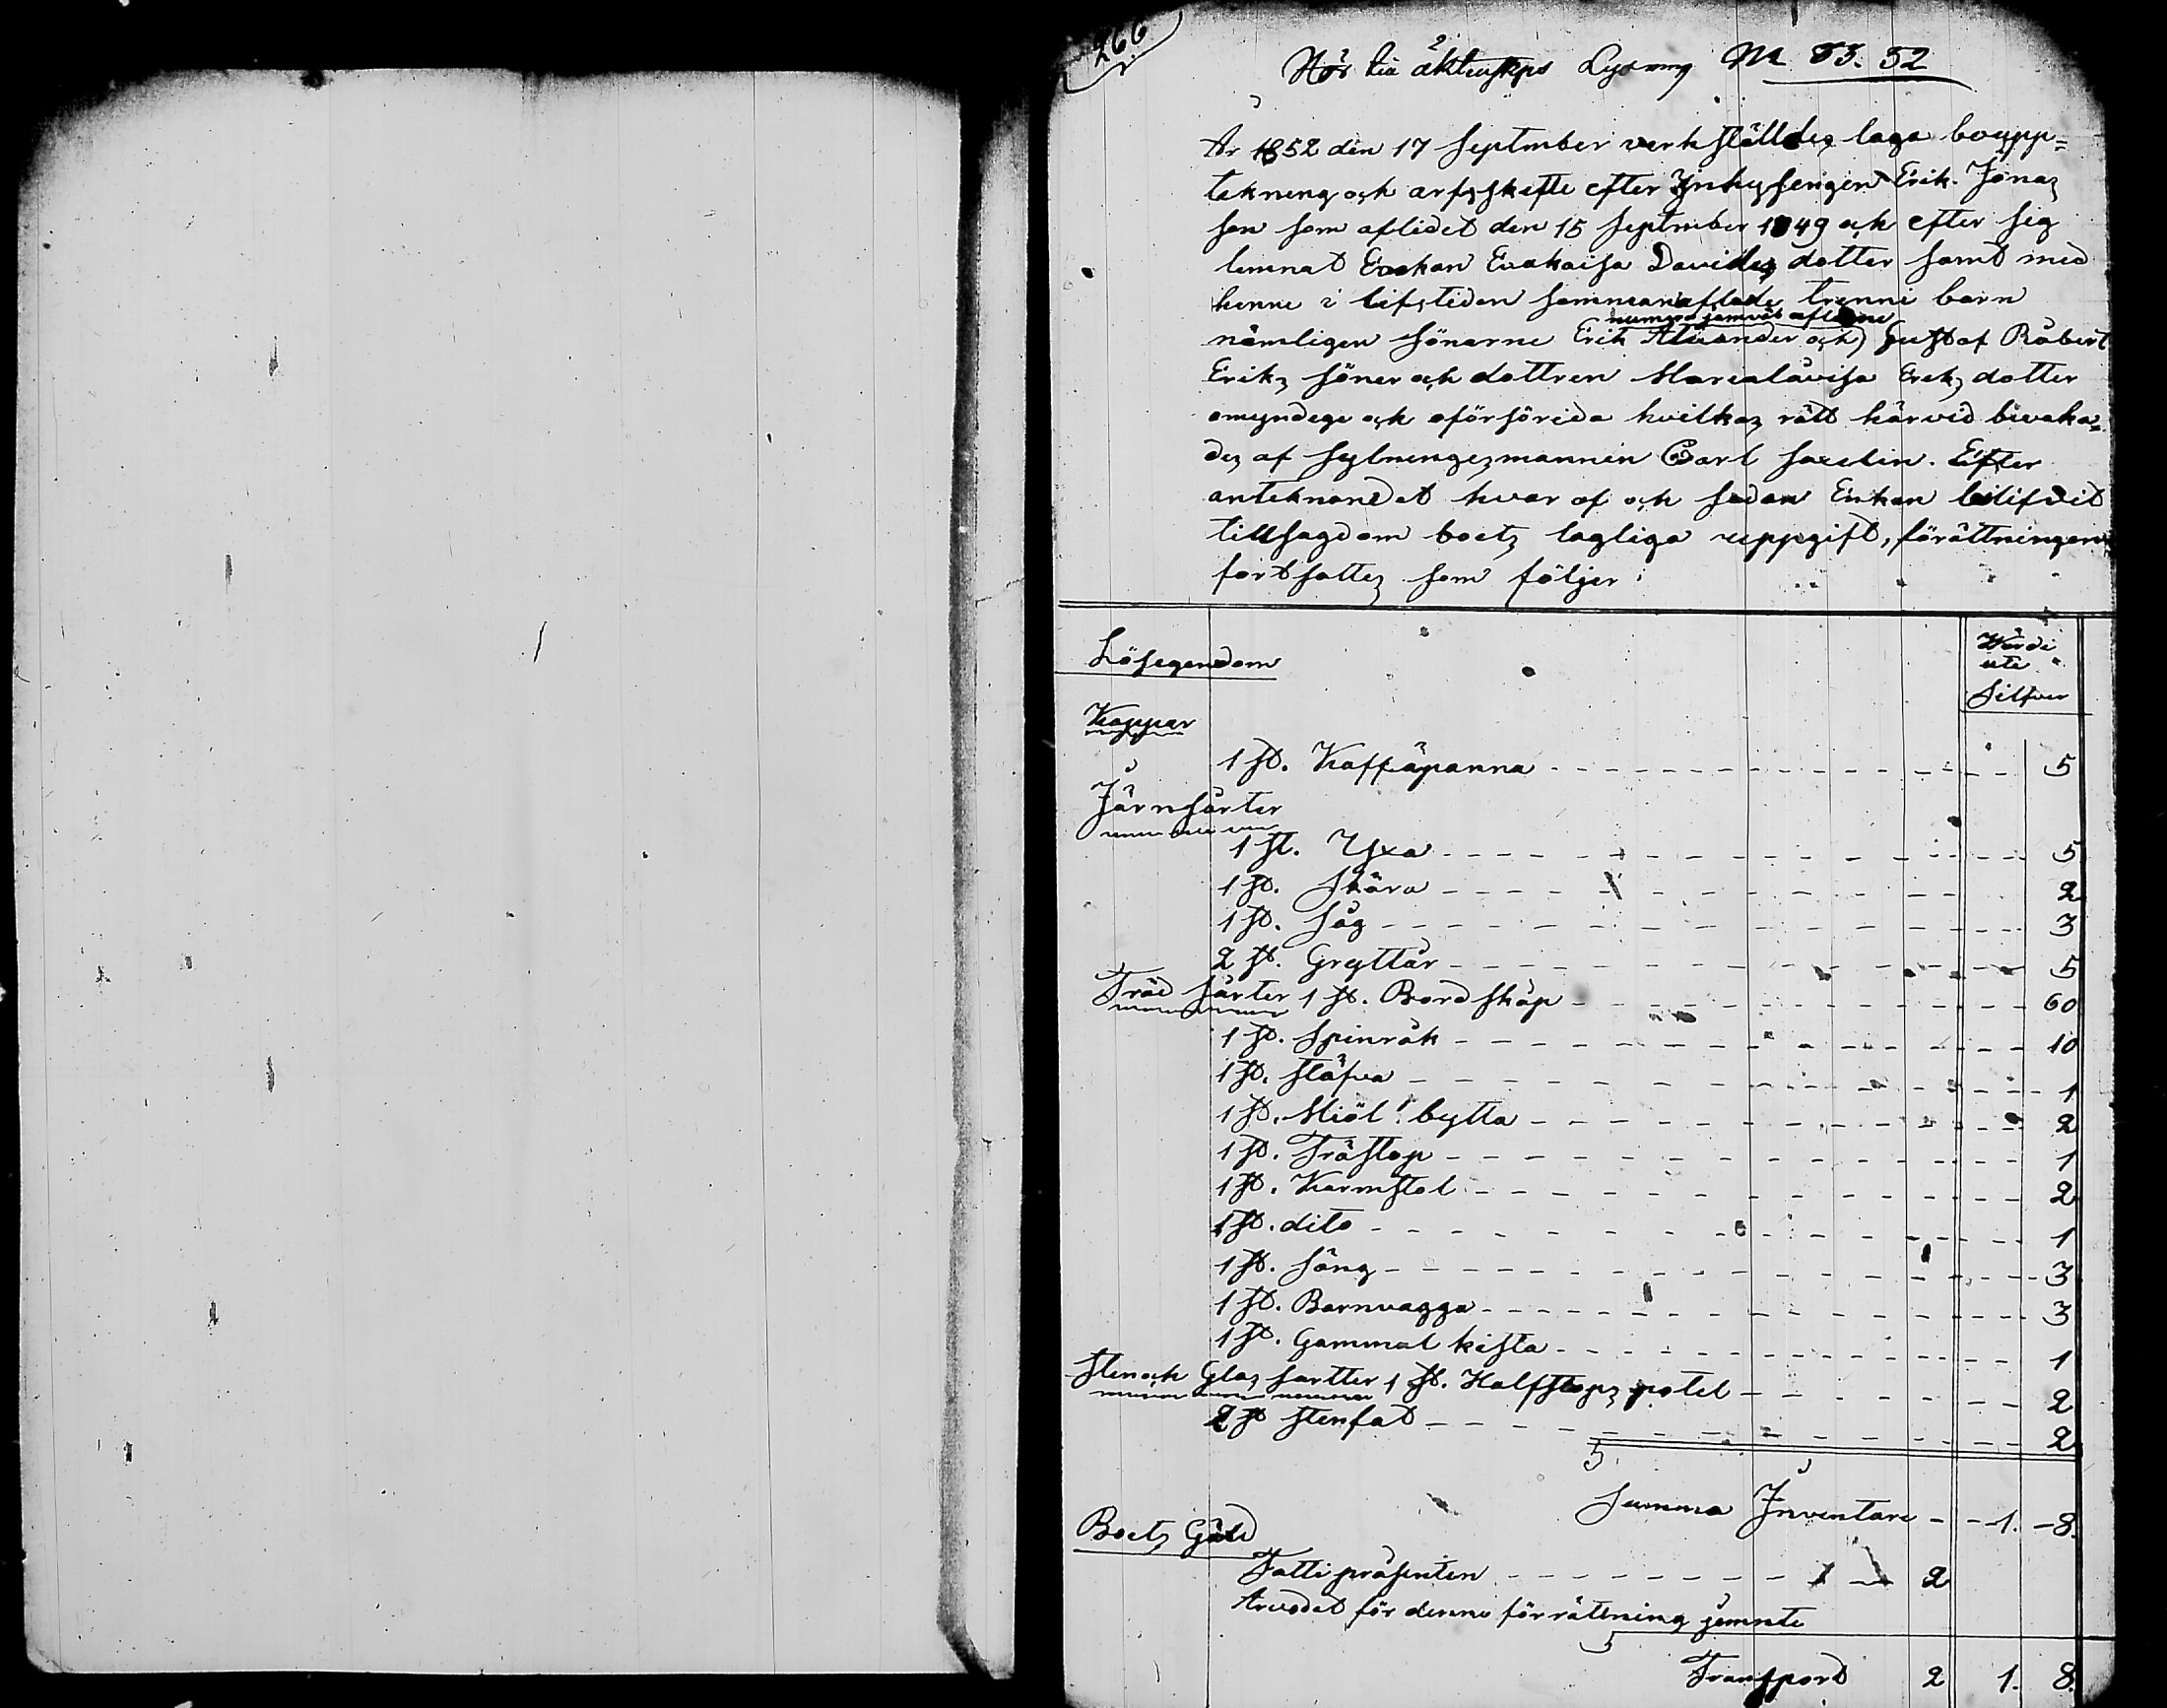 266
Hör till äktenskps Lysning M 53. 52
År 1852 den 17 September verkställdes laga boupp=
tekning och arfsskifte efter Inhysingen Erik Jonas
son som aflidet den 15 September 1849 och efter sig
lemnat Enkan Evakaisa Davids dotter samt med
henne i lifstiden sammanaflade trenne barn
numera jemväl aflidne
nämligen Sönerne Erik Alexander och) Gustaf Råbert
Eriks söner och dottren Marialåvisa Eriks dotter
omyndege och oförsörida hvilkas rätt härvid bivaka=
des af fylnengesmannen Carl Saxelin. Efter
anteknandet hvar af och sedan Enkan blifvit
tillsagd om boets lagliga uppgift, förättningen
fortsattes som följer:
Lösegendom
Wärde
uti
Silfver
Koppar
1 st. Kaffäpanna 5
Järnsärter
1 st. Yxa 5
1 st. Skära 2
1 st. Såg 3
2 st. Gryttår 5
Träd särter 1 st. Bordskåp 60
1 st. Spinråk 10
1 st. Stäfva 1
1 st. Miöl bytta 2
1 st. Trästop 1
1 st. Karmstol 2
1 st. dito 1
1 st. Säng 3
1 st. Barnvagga 3
1 st. Gammal kista 1
Sten och Glas sartter 1 st. Halfstops potel 2
2 st Stenfat 2
Summa Inventare 1. 8.
Boets Gäld
Fattiprosenten 2
Arvodet för denne förrättning jemnte
Transport 2 1. 8.